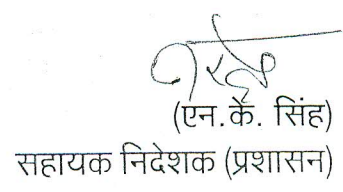 (एन.के. सिंह)
सहायक निदेशक (प्रशासन)